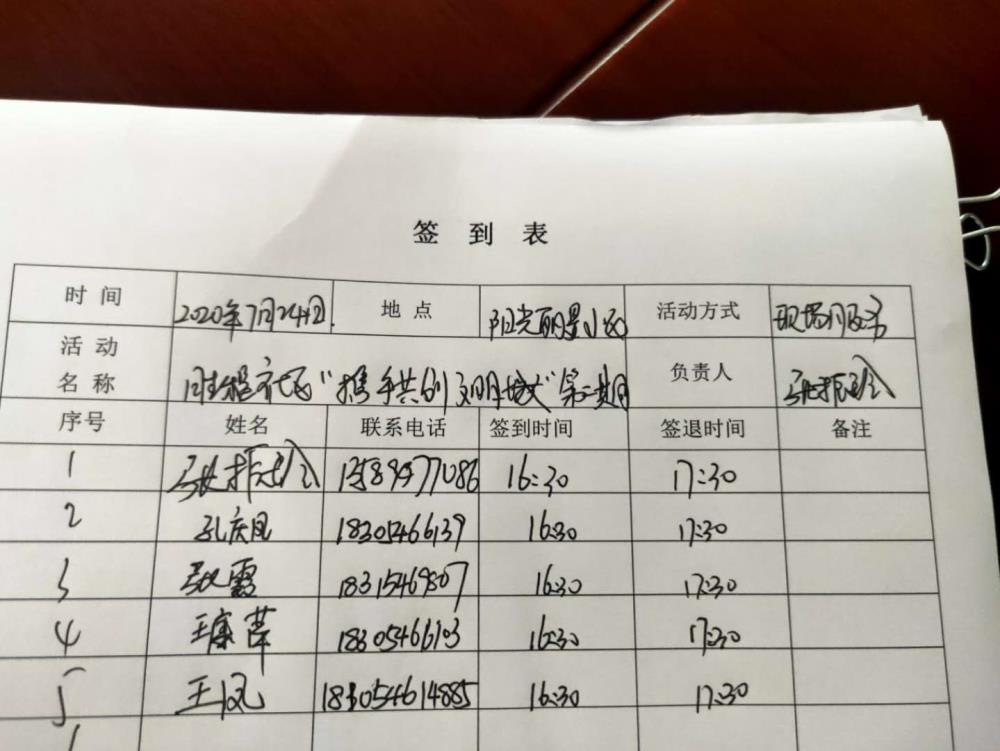 签 到 表
时 间 2020年7月24日. 地 点 阳光丽景小区 活动方式 现场服务
活 动
名 称 胜程社区“携手共创文明城”第二期 负责人
序号 姓名 联系电话 签到时间 签退时间 备注
1 16:30 17:30
2 孔庆凤 18305466139 16:30 17:30
3 张霞 16:30 17:30
4 王康萍 16:30 17:30
5 王凤 16:30 17:30